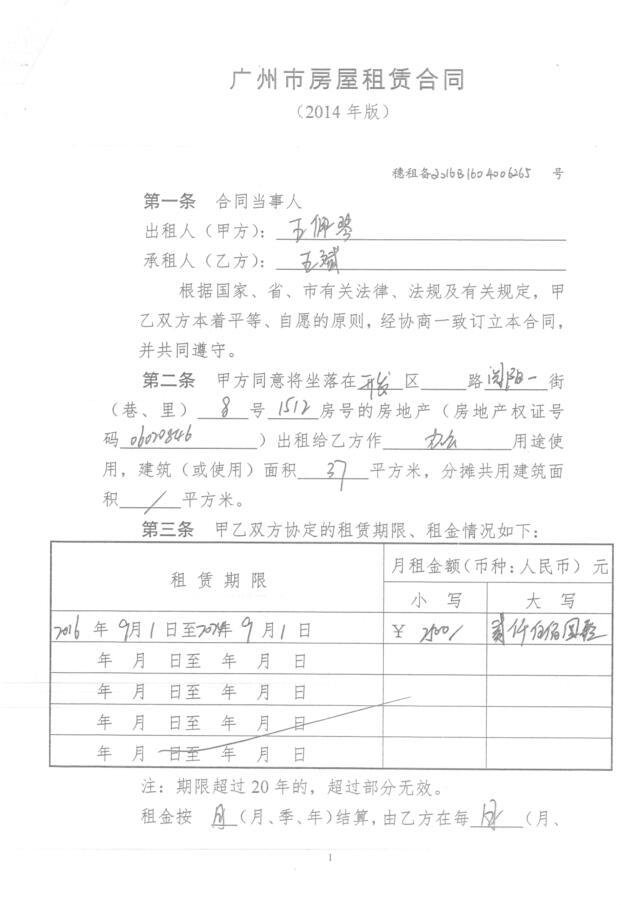 广州市房屋租赁合同
（2014 年版）
穗租备2016B1604006265 号
第一条 合同当事人
出租人（甲方）：王佩琴
承租人（乙方）：王斌
根据国家、省、市有关法律、法规及有关规定，甲
乙双方本着平等、自愿的原则，经协商一致订立本合同，
并共同遵守。
第二条 甲方同意将坐落在开发区 路浏阳一街
（巷、里）8 号1512房号的房地产（房地产权证号
码06020846 ）出租给乙方作 办公 用途使
用，建筑（或使用）面积 37 平方米，分摊共用建筑面
积 / 平方米。
第三条 甲乙双方协定的租赁期限、租金情况如下：
租 赁 期 限
月租金额（币种：人民币）元
小 写 大 写
2016 年 9月 1 日至 年 9 月 1 日 ￥ 2500/ 贰仟伍佰圆整
年 月 日至 年 月 日
年 月 日至 年 月 日
年 月 日至 年 月 日
年 月 日至 年 月 日
注：期限超过 20 年的，超过部分无效。
租金按 月（月、季、年）结算，由乙方在每 月（月、
1